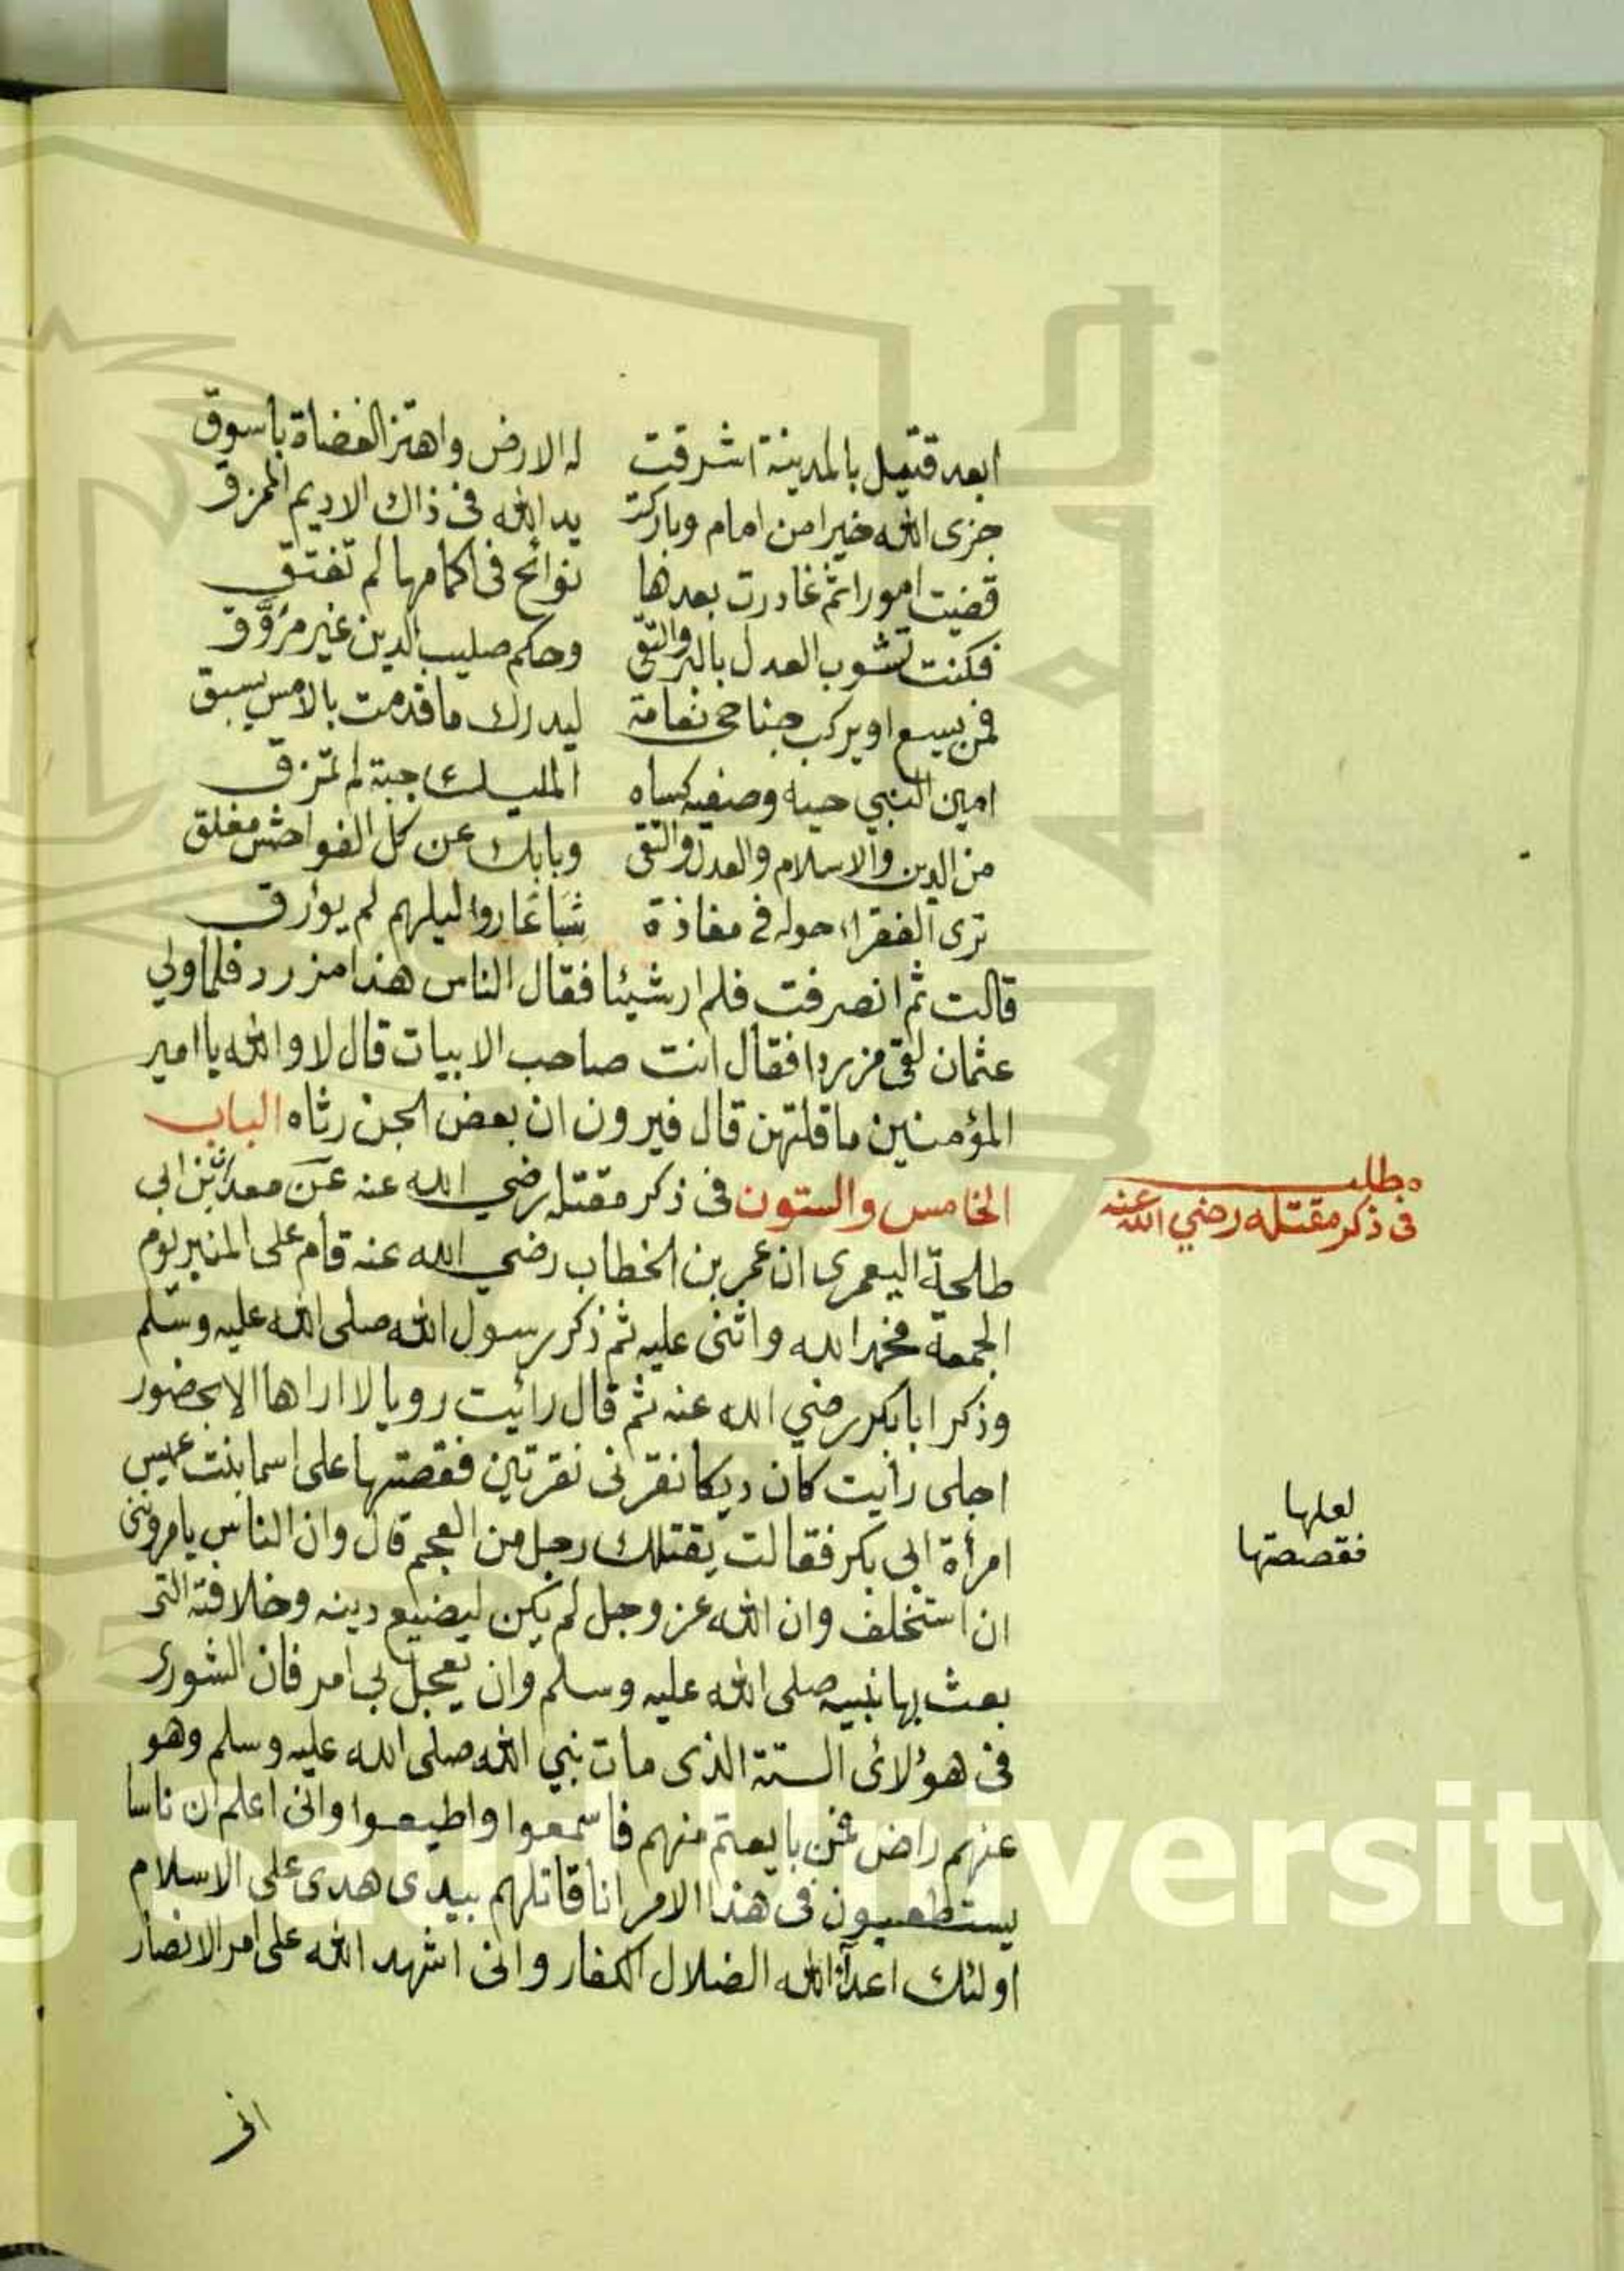 ابعد قتيل بالمدينة اشرقت له الارض واهتز العضاة باسوق
جزى الله خيرا من امام وباركت يد الله فى ذاك الاديم الممزق
قضيت امورا ثم غادرت بعدها نوائح فى اكمامها لم تفتق
فكنت تشوب العدل بالبر والتقى وحكم صليب الدين غير مزوق
فمن يسع او يركب جناحى نعامة ليدرك ما قدمت بالامس يسبق
امين النبي حبه وصفيه كساه المليك جبة لم تمزق
من الدين والاسلام والعدل والتقى وبابك عن كل الفواحش مغلق
ترى الفقراء حوله فى مفازة شباعا رواء ليلهم لم يؤرق
قالت ثم انصرفت فلم ار شيئا فقال الناس هذا مزرد فلما ولي
عثمان لقى مزردا فقال انت صاحب الابيات قال لا والله يا امير
المؤمنين ما قلتهن قال فيرون ان بعض الجن رثاه الباب
الخامس والستون فى ذكر مقتله رضي الله عنه عن معدان بن ابي
طلحة اليعمرى ان عمر بن الخطاب رضي الله عنه قام على المنبر يوم
الجمعة فحمد الله واثنى عليه ثم ذكر رسول الله صلى الله عليه وسلم
وذكر ابا بكر رضي الله عنه ثم قال رائيت رويا لا اراها الا بحضور
اجلى رأيت كان ديكا نقرنى نقرتين فقصتها على اسما بنت عميس
امرأة ابى بكر فقالت يقتلك رجل من العجم قال وان الناس يامروننى
ان استخلف وان الله عز وجل لم يكن ليضيع دينه وخلافته التى
بعث بها نبيه صلى الله عليه وسلم وان يعجل بى امر فان الشورى
فى هؤلائ الستة الذى مات نبي الله صلى الله عليه وسلم وهو
عنهم راض فمن بايعتم منهم فاسمعوا واطيعوا وانى اعلم ان ناسا
يستطعيون فى هذا الامر انا قاتلهم بيدى هدى على الاسلام
اولئك اعدآء الله الضلال الكفار وانى اشهد الله على امر الانصار
انى
مطلب
فى ذكر مقتله رضي الله عنه
لعلها
فقصصتها
University